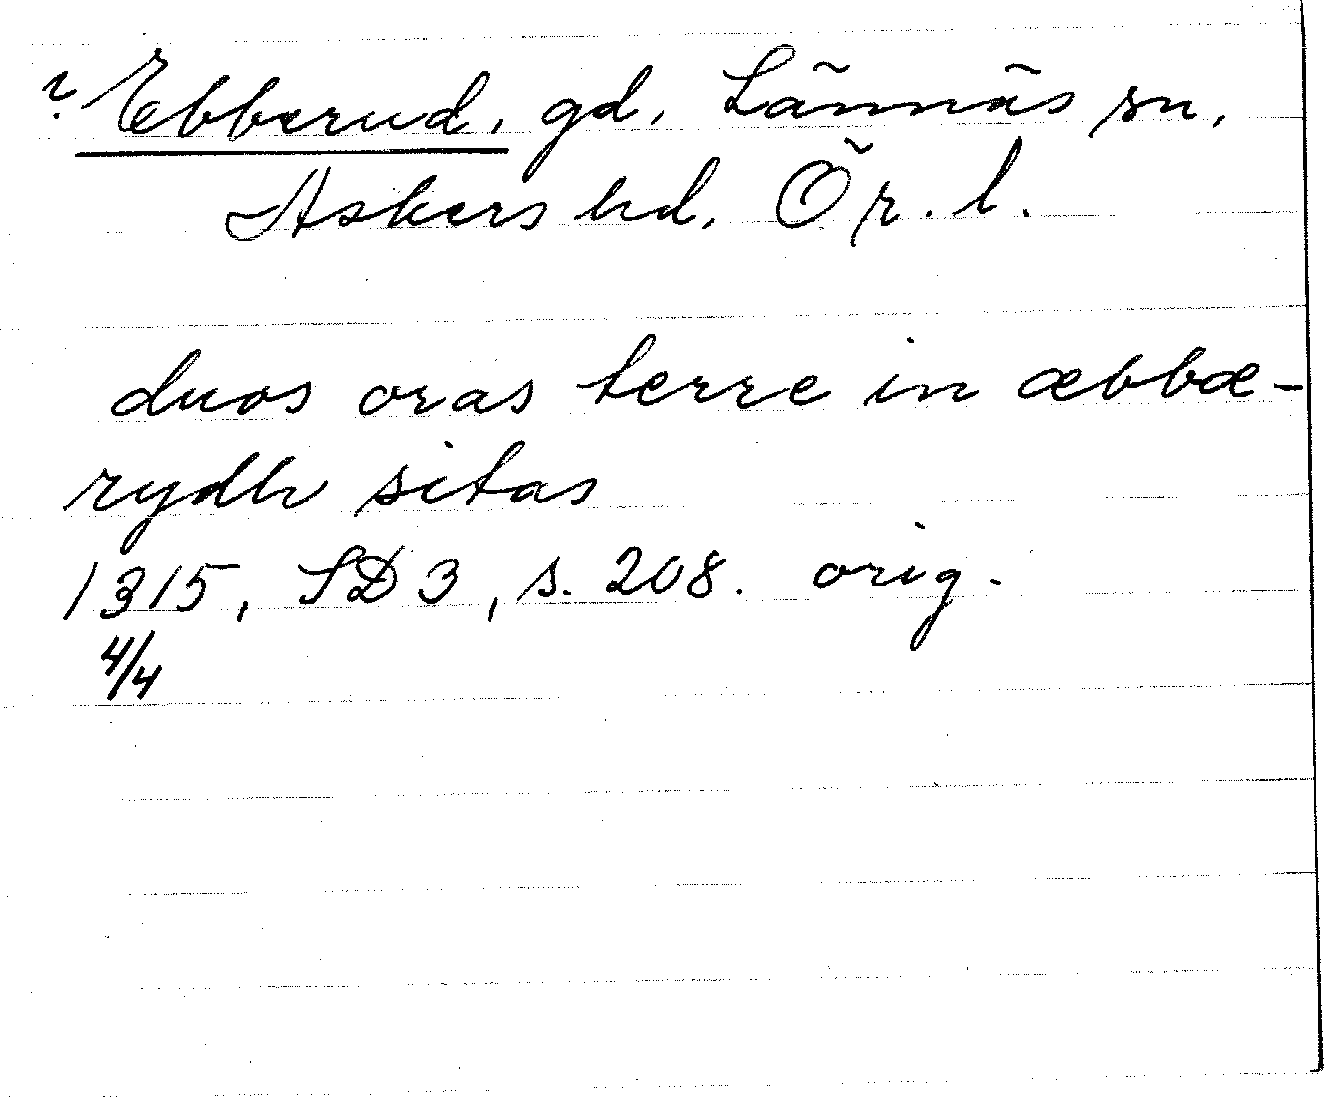 ? Ebberud, gd, Lännäs sn,
Askers hd, Ör. l.
duos oras terre in æbbæ-
rydh sitas
1315, SD 3, s. 208. orig.
4/4